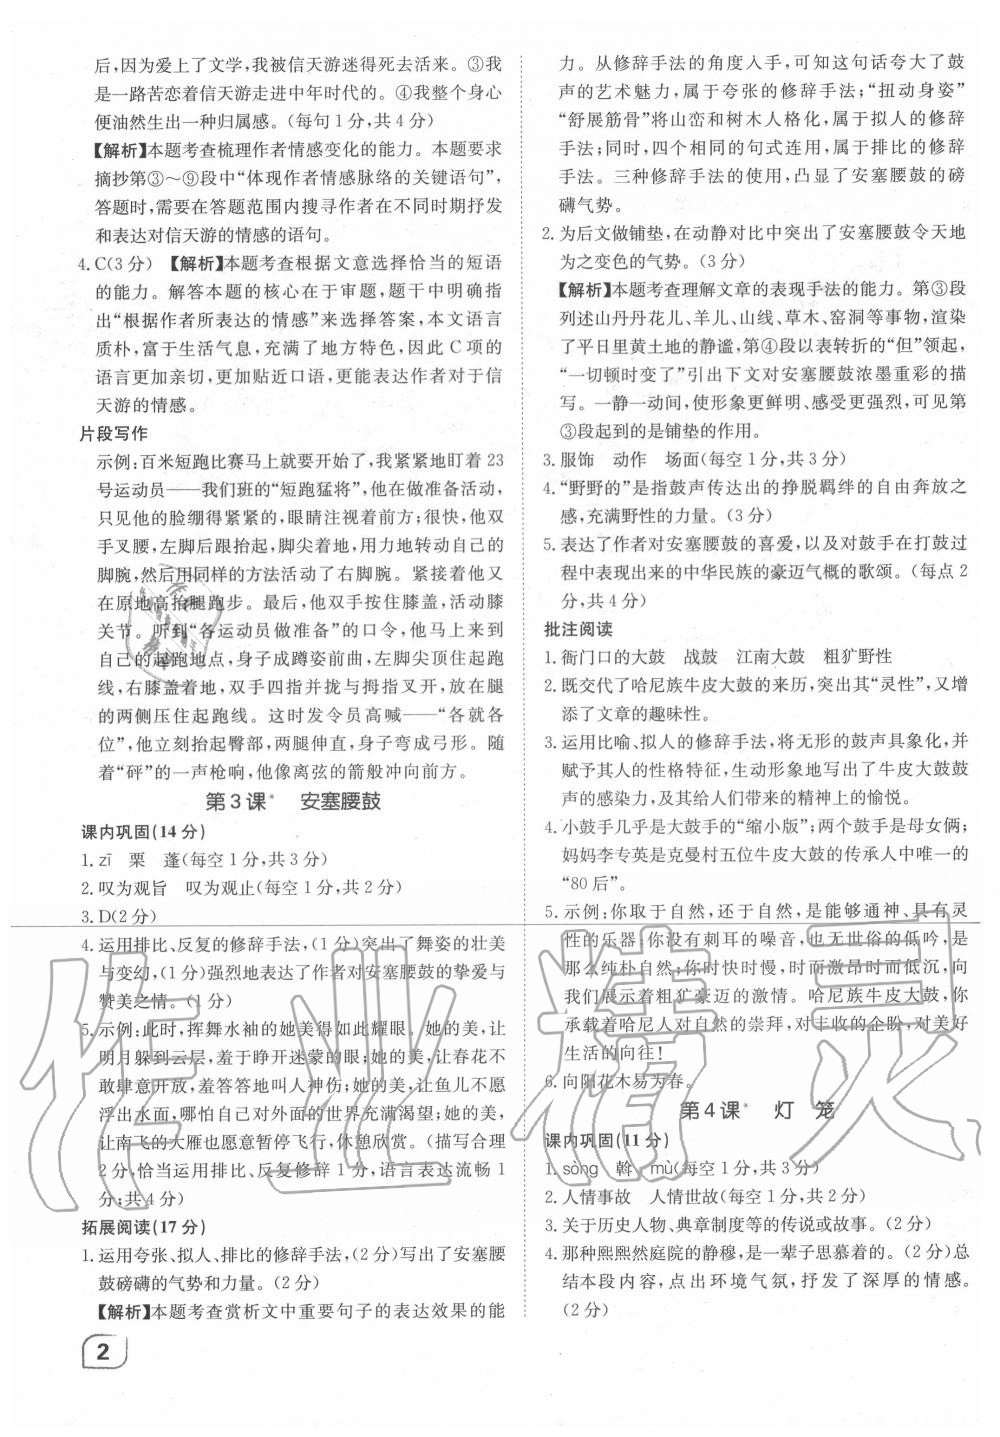 后,因为爱上了文学,我被信天游迷得死去活来。③我
是一路苦恋着信天游走进中年时代的。④我整个身心
便油然生出一种归属感。(每句1分,共4分)
【解析】本题考查梳理作者情感变化的能力。本题要求
摘抄第③~⑨段中“体现作者情感脉络的关键语句”,
答题时,需要在答题范围内搜寻作者在不同时期抒发
和表达对信天游的情感的语句。
4. C(3分) 【解析】本题考查根据文意选择恰当的短语
的能力。解答本题的核心在于审题,题干中明确指
出“根据作者所表达的情感”来选择答案,本文语言
质朴,富于生活气息,充满了地方特色,因此C项的
语言更加亲切,更加贴近口语,更能表达作者对于信
天游的情感。
片段写作
示例:百米短跑比赛马上就要开始了,我紧紧地盯着23
号运动员——我们班的“短跑猛将”,他在做准备活动,
只见他的脸绷得紧紧的,眼睛注视着前方;很快,他双
手叉腰,左脚后跟抬起,脚尖着地,用力地转动自己的
脚腕,然后用同样的方法活动了右脚腕。紧接着,他又
在原地高抬腿跑步。最后,他双手按住膝盖,活动膝
关节。听到“各运动员做准备”的口令,他们来到自己
的起跑地点,身子成蹲姿前曲,左脚尖顶住起跑线,
右膝盖着地,双手四指并拢与拇指叉开,放在腿
的两侧压住起跑线。这时发令员高喊——“各就各
位”,他立刻抬起臀部,两腿伸直,身子弯成弓形。随
着“砰”的一声枪响,他像离弦的箭般冲向前方。
第3课* 安塞腰鼓
课内巩固(14分)
1. zī 栗 蓬(每空1分,共3分)
2. 叹为观旨 叹为观止(每空1分,共2分)
3. D(2分)
4. 运用排比、反复的修辞手法,(1分)突出了舞姿的壮美
与变幻,(1分)强烈地表达了作者对安塞腰鼓的挚爱与
赞美之情。(1分)
5. 示例:此时,挥舞水袖的她美得如此耀眼。她的美,让
明月躲到云层,羞于睁开迷蒙的眼;她的美,让春花不
敢肆意开放,羞答答地叫人神伤;她的美,让鱼儿不屑
浮出水面,哪怕自己对外面的世界充满渴望;她的美,
让南飞的大雁也愿意暂停飞行,休憩欣赏。(描写合理
2分,恰当运用排比、反复修辞1分,语言表达流畅1
分;共4分)
拓展阅读(17分)
1. 运用夸张、拟人、排比的修辞手法,(2分)写出了安塞腰
鼓磅礴的气势和力量。(2分)
【解析】本题考查赏析文中重要句子的表达效果的能
2
力。从修辞手法的角度入手,可知这句话夸大了鼓
声的艺术魅力,属于夸张的修辞手法;“扭动身姿”
“舒展筋骨”将山峦和树木人格化,属于拟人的修辞
手法;同时,四个相同的句式连用,属于排比的修辞
手法。三种修辞手法的使用,凸显了安塞腰鼓的磅
礴气势。
2. 为后文做铺垫,在动静对比中突出了安塞腰鼓令天地
为之变色的气势。(3分)
【解析】本题考查理解文章的表现手法的能力。第③段
列述山丹丹花儿、羊儿、山线、草木、窑洞等事物,渲染
了平日里黄土地的静谧,第④段以表转折的“但”领起,
“一切顿时变了”引出下文对安塞腰鼓浓墨重彩的描
写。一静一动间,使形象更鲜明、感受更强烈,可见第
③段起到的是铺垫的作用。
3. 服饰 动作 场面(每空1分,共3分)
4. “野野的”是指鼓声传达出的挣脱羁绊的自由奔放之
感,充满野性的力量。(3分)
5. 表达了作者对安塞腰鼓的喜爱,以及对鼓手在打鼓过
程中表现出来的中华民族的豪迈气概的歌颂。(每点2
分,共4分)
批注阅读
1. 衙门口的大鼓 战鼓 江南大鼓 粗犷野性
2. 既交代了哈尼族牛皮大鼓的来历,突出其“灵性”,又增
添了文章的趣味性。
3. 运用比喻、拟人的修辞手法,将无形的鼓声具象化,并
赋予其人的性格特征,生动形象地写出了牛皮大鼓鼓
声的感染力,及其给人们带来的精神上的愉悦。
4. 小鼓手几乎是大鼓手的“缩小版”;两个鼓手是母女俩;
妈妈李专英是克曼村五位牛皮大鼓的传承人中唯一的
“80后”。
5. 示例:你取于自然,还于自然,是能够通神、具有灵
性的乐器;你没有刺耳的噪音,也无世俗的低吟,是
那么纯朴自然;你时快时慢,时而激昂时而低沉,向
我们展示着粗犷豪迈的激情。哈尼族牛皮大鼓,你
承载着哈尼人对自然的崇拜,对丰收的企盼,对美好
生活的向往!
6. 向阳花木易为春。
第4课* 灯 笼
课内巩固(11分)
1. sòng 斡 mù(每空1分,共3分)
2. 人情事故 人情世故(每空1分,共2分)
3. 关于历史人物、典章制度等的传说或故事。(2分)
4. 那种熙熙然庭院的静穆,是一辈子思慕着的。(2分)总
结本段内容,点出环境气氛,抒发了深厚的情感。
(2分)
作业精灵